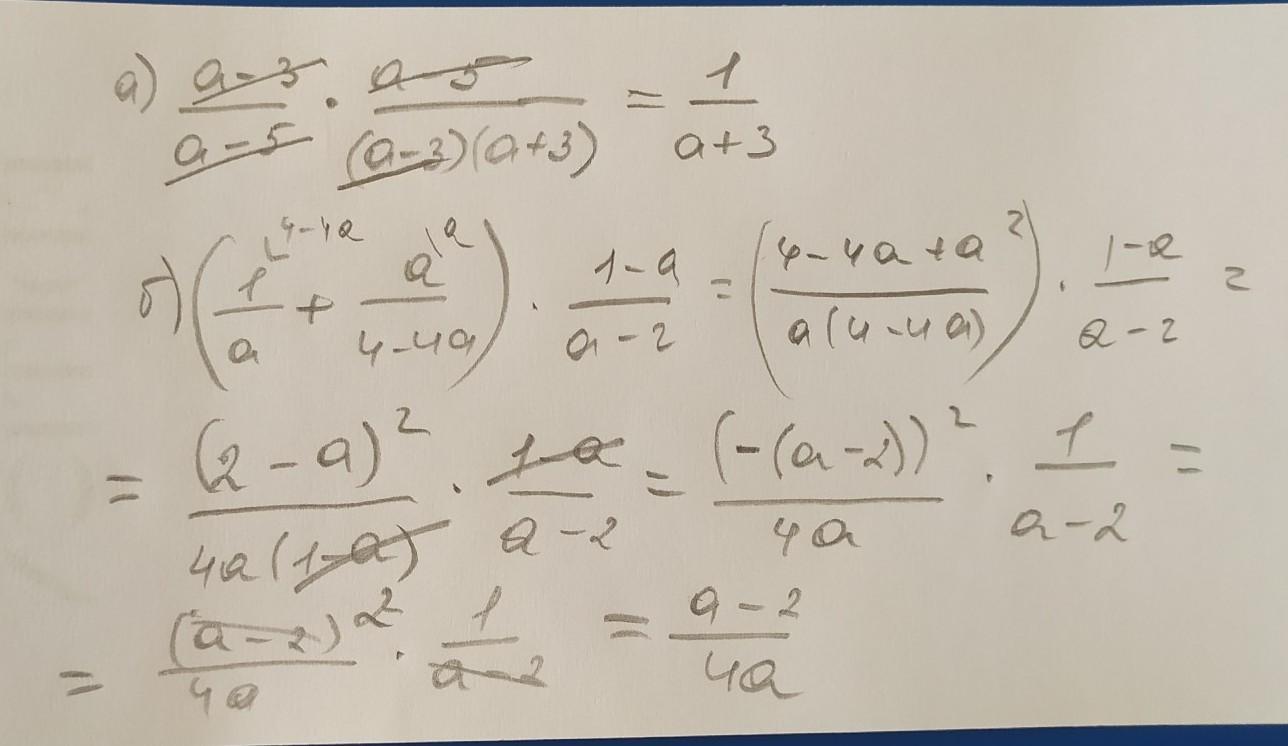 а) (a-3)/(a-5) · (a-5)/((a-3)(a+3)) = 1/(a+3)
б) (1/a + a/(4-4a)) · (1-a)/(a-2) = ((4-4a+a²)/(a(4-4a))) · (1-a)/(a-2) =
= (2-a)²/(4a(1-a)) · (1-a)/(a-2) = (-(a-2))²/(4a) · 1/(a-2) =
= (a-2)²/(4a) · 1/(a-2) = (a-2)/(4a)